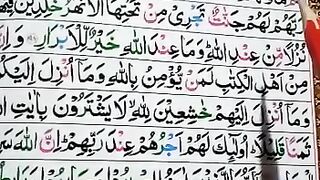 رَبَّهُمْ لَهُمْ جَنّٰتٌ تَجْرِيْ مِنْ تَحْتِهَا الْاَنْهٰرُ خٰلِدِيْنَ فِيْهَا
نُزُلًا مِّنْ عِنْدِ اللّٰهِ ؕ وَمَا عِنْدَ اللّٰهِ خَيْرٌ لِّلْاَبْرَارِ وَاِنَّ
مِنْ اَهْلِ الْكِتٰبِ لَمَنْ يُّؤْمِنُ بِاللّٰهِ وَمَاۤ اُنْزِلَ اِلَيْكُمْ
وَمَاۤ اُنْزِلَ اِلَيْهِمْ خٰشِعِيْنَ لِلّٰهِ ۙ لَا يَشْتَرُوْنَ بِاٰيٰتِ اللّٰهِ
ثَمَنًا قَلِيْلًا ؕ اُولٰٓئِكَ لَهُمْ اَجْرُهُمْ عِنْدَ رَبِّهِمْ ؕ اِنَّ اللّٰهَ